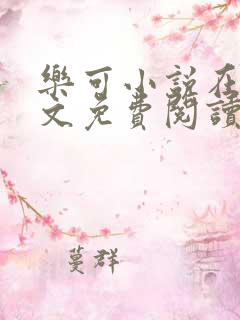 樂可小說在
文免費閱讀
蔓群